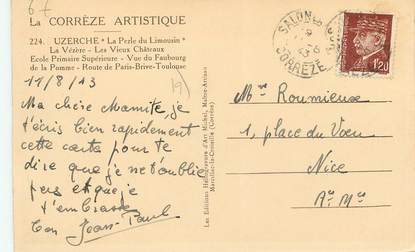 67
La CORRÈZE ARTISTIQUE
224. UZERCHE "La Perle du Limousin"
La Vézère - Les Vieux Châteaux
Ecole Primaire Supérieure - Vue du Faubourg
de la Pomme - Route de Paris-Brive-Toulouse
11/8/43
Ma chère Mamite, je
t'écris bien rapidement
cette carte pour te
dire que je ne t'oublie
pas et que je
t'embrasse
ton Jean-Paul
Les Editions Héliogravure d'Art Michel, Maître-Artisan
Marcillac-la-Croisille (Corrèze)
CORRÈZE
1f20
Mme Roumieux
1, place du Vœu
Nice
A. M.